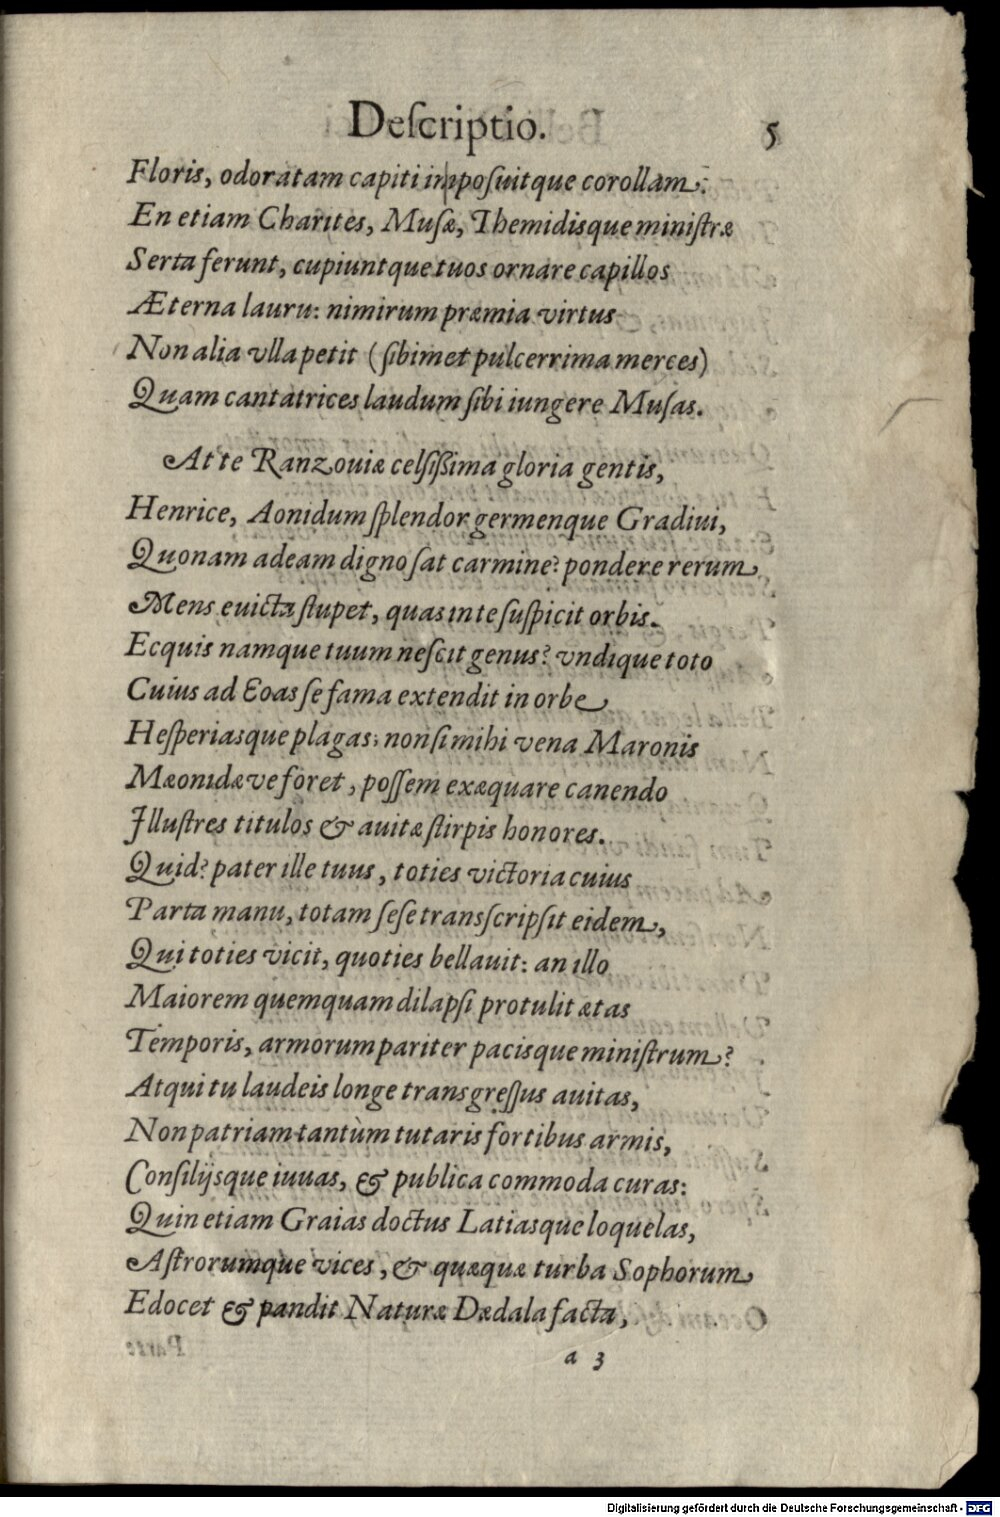 Deſcriptio. 5
Floris, odoratam capiti impoſuitque corollam:
En etiam Charites, Muſæ, Themidisque miniſtræ
Serta ferunt, cupiuntque tuos ornare capillos
Æterna lauru: nimirum præmia virtus
Non alia vlla petit (ſibimet pulcerrima merces)
Quam cantatrices laudum ſibi iungere Muſas.
At te Ranzouiæ celſiſſima gloria gentis,
Henrice, Aonidum ſplendor germenque Gradiui,
Quonam adeam digno ſat carmine? pondere rerum
Mens euicta ſtupet, quas in te ſuſpicit orbis.
Ecquis namque tuum neſcit genus? vndique toto
Cuius ad Eoas ſe fama extendit in orbe
Heſperiasque plagas; non ſi mihi vena Maronis
Mæonidæ ve foret, poſſem exæquare canendo
Illuſtres titulos & auitæ ſtirpis honores.
Quid? pater ille tuus, toties victoria cuius
Parta manu, totam ſeſe transſcripſit eidem,
Qui toties vicit, quoties bellauit: an illo
Maiorem quemquam dilapſi protulit ætas
Temporis, armorum pariter pacisque miniſtrum?
Atqui tu laudeis longe transgreſſus auitas,
Non patriam tantùm tutaris fortibus armis,
Conſilijsque iuuas, & publica commoda curas:
Quin etiam Graias doctus Latiasque loquelas,
Aſtrorumque vices, & quæquæ turba Sophorum
Edocet & pandit Naturæ Dædala facta,
a 3
Digitalisierung gefördert durch die Deutsche Forschungsgemeinschaft - DFG